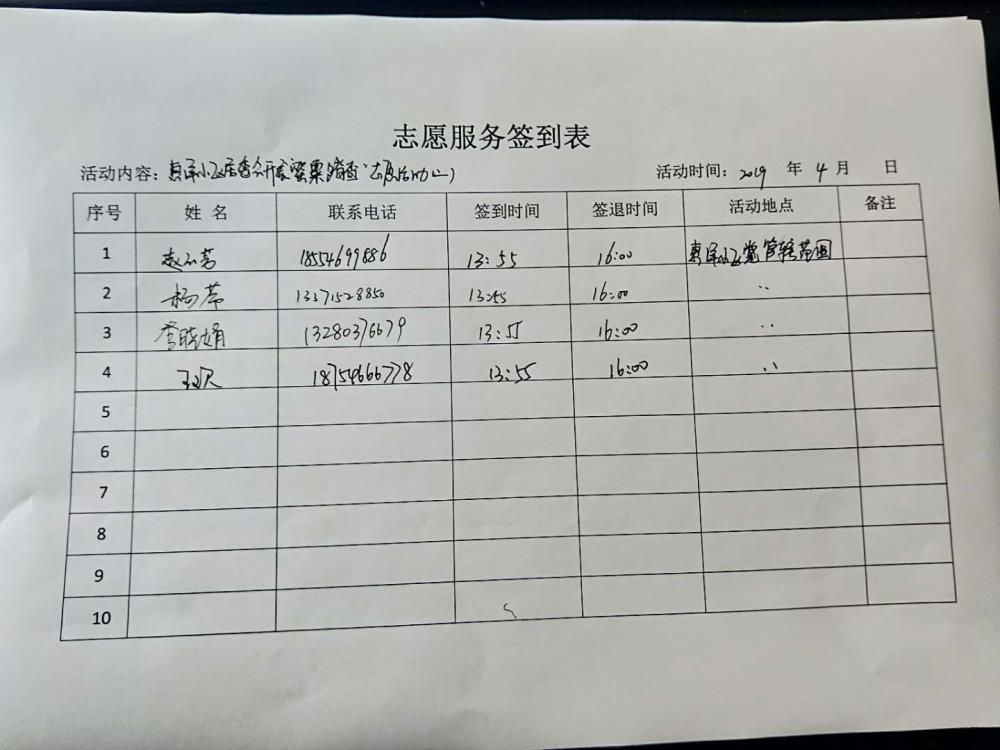 志愿服务签到表
活动内容：惠泽小区居委会开展罂粟踏查志愿活动 活动时间：2019 年 4 月 日
序号 姓名 联系电话 签到时间 签退时间 活动地点 备注
1 18554699886 13:55 16:00 惠泽小区管辖范围
2 杨苇 13371528850 13:45 16:00 ··
3 常晓娟 13280376679 13:55 16:00 ··
4 18754666778 13:55 16:00 ··
5
6
7
8
9
10